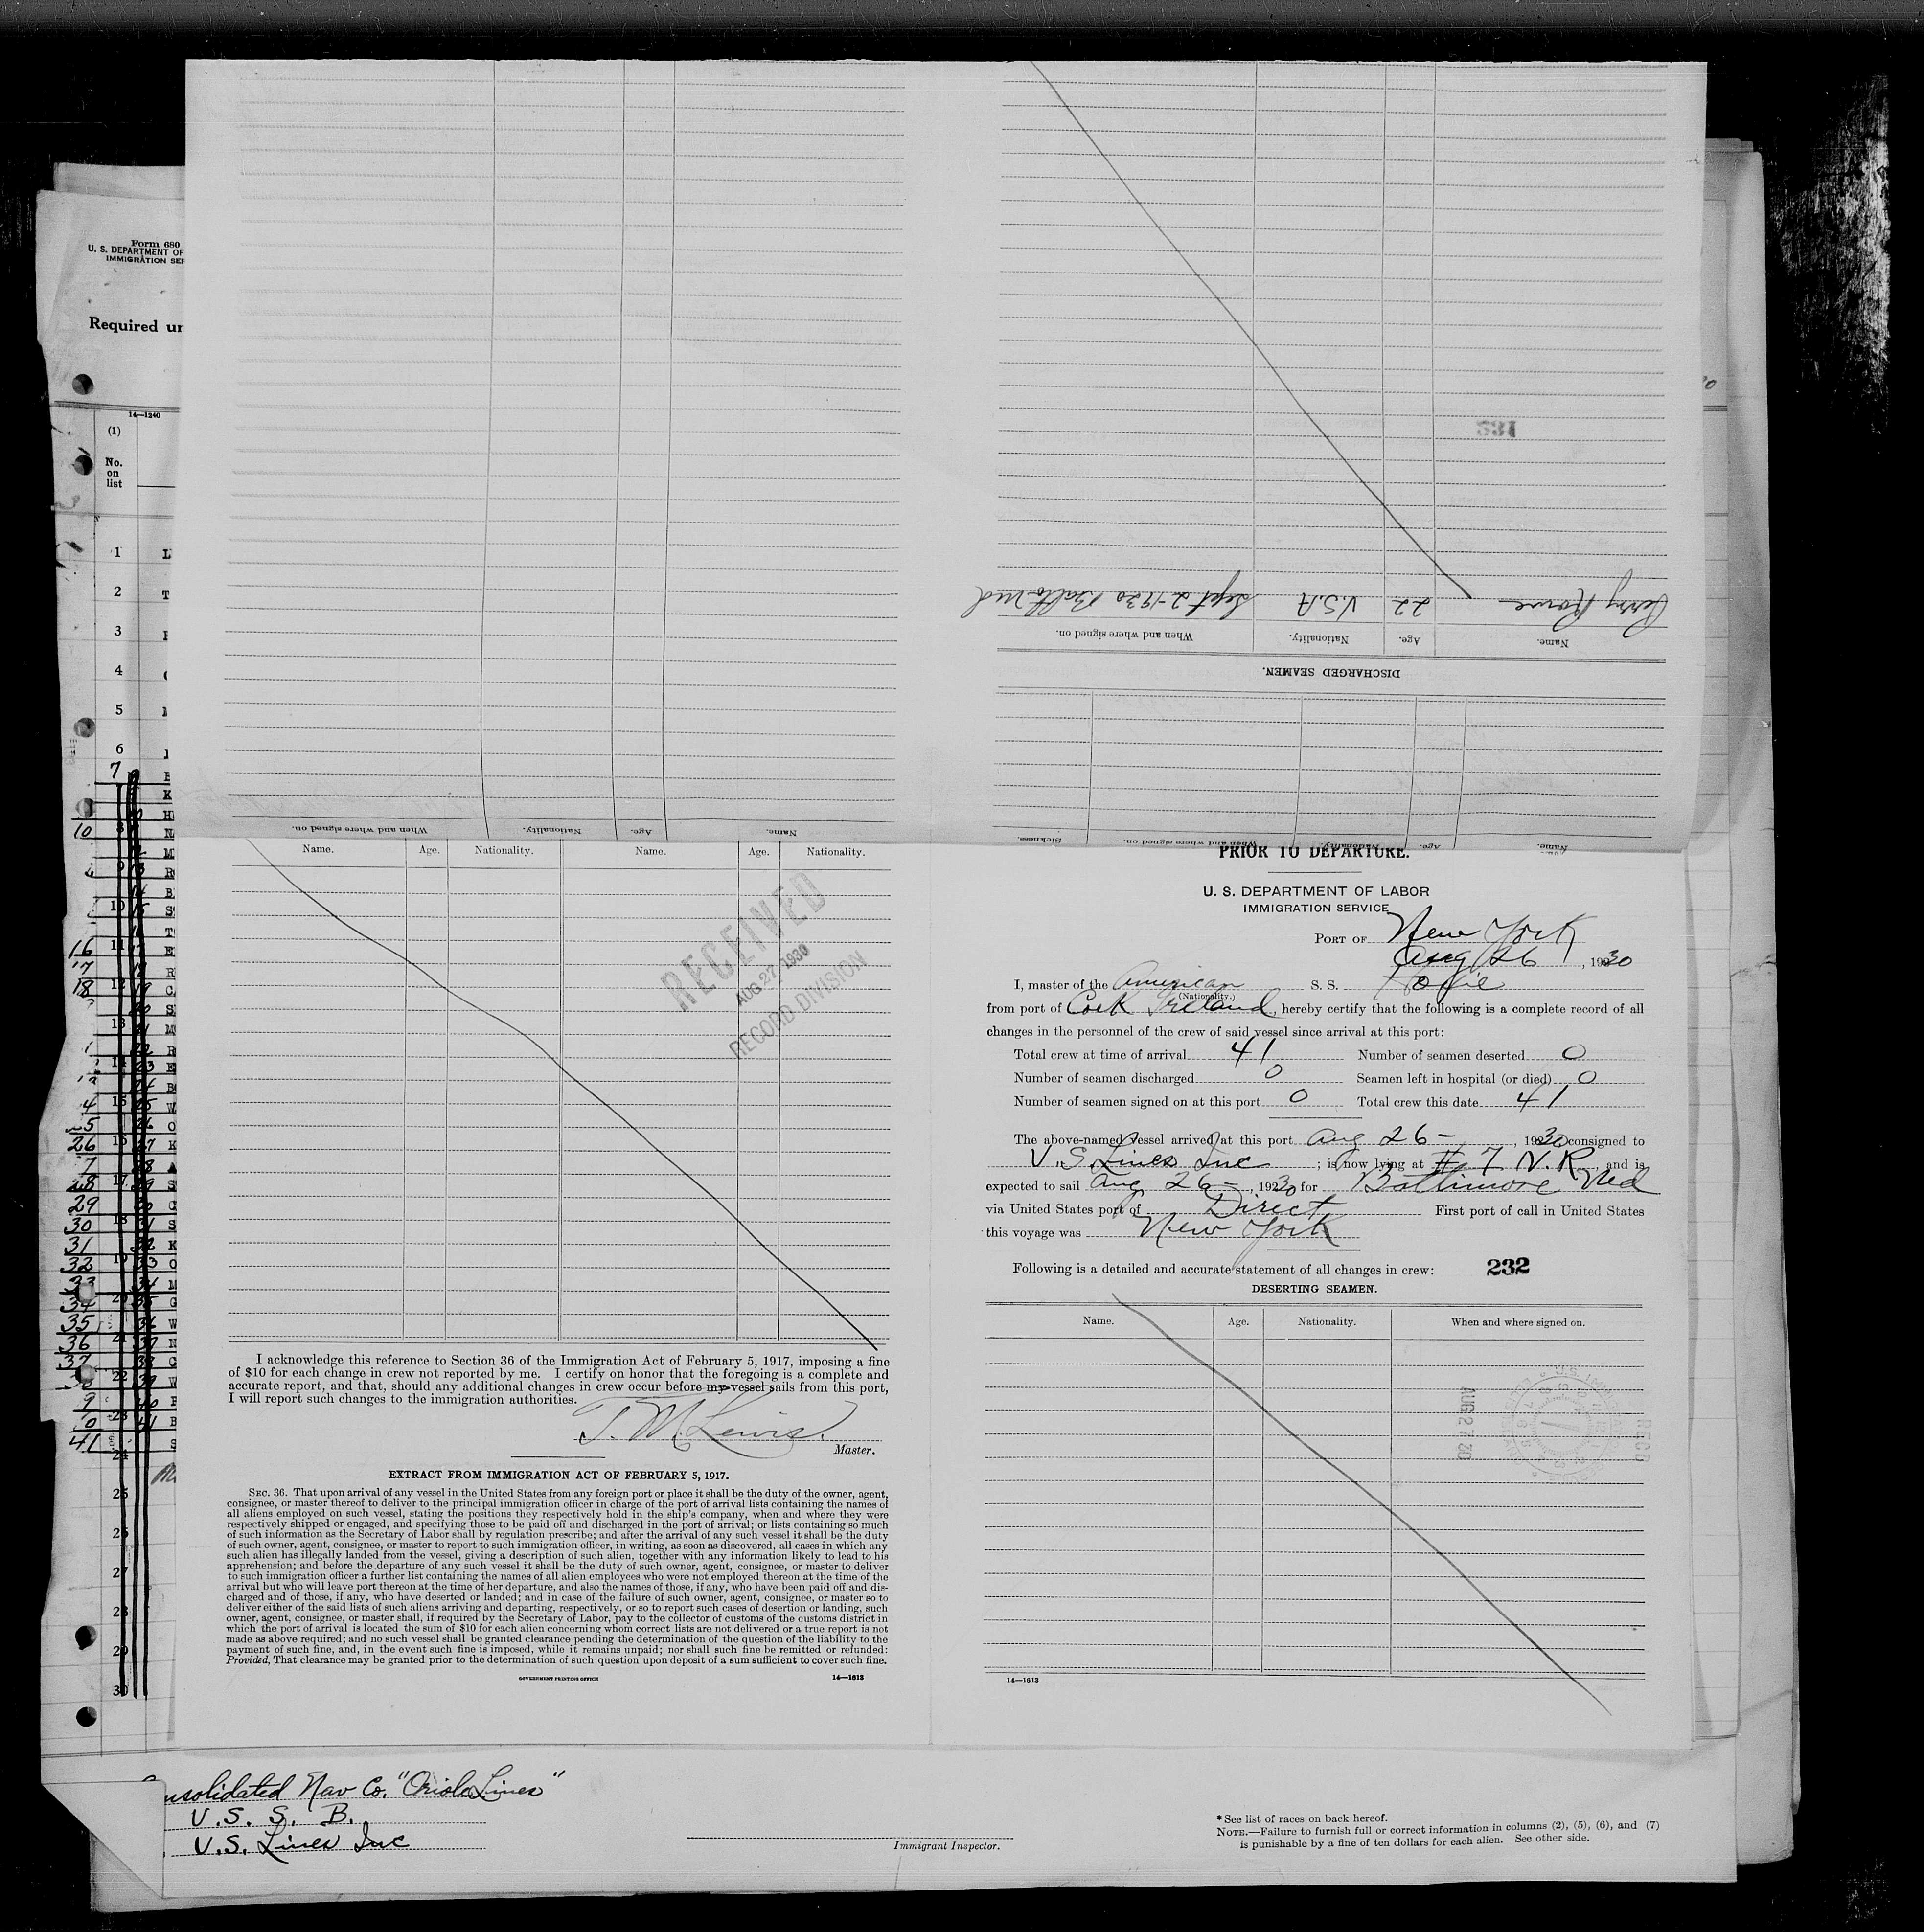 Form 680
U. S. DEPARTMENT OF
IMMIGRATION SER
Required un
14—1240
(1)
No.
on
list
Name. Age. Nationality. When and where signed on.
Name. Age. Nationality. When and where signed on. Sickness.
DISCHARGED SEAMEN.
Name. Age. Nationality. When and where signed on.
Perry Rowe 22 U.S.A Sept 2-1930 Balto Md
231
Name. Age. Nationality. Name. Age. Nationality.
RECEIVED
AUG 27 1930
RECORD DIVISION
I acknowledge this reference to Section 36 of the Immigration Act of February 5, 1917, imposing a fine
of $10 for each change in crew not reported by me. I certify on honor that the foregoing is a complete and
accurate report, and that, should any additional changes in crew occur before my vessel sails from this port,
I will report such changes to the immigration authorities.
T. M. Lewis.
Master.
EXTRACT FROM IMMIGRATION ACT OF FEBRUARY 5, 1917.
SEC. 36. That upon arrival of any vessel in the United States from any foreign port or place it shall be the duty of the owner, agent,
consignee, or master thereof to deliver to the principal immigration officer in charge of the port of arrival lists containing the names of
all aliens employed on such vessel, stating the positions they respectively hold in the ship's company, when and where they were
respectively shipped or engaged, and specifying those to be paid off and discharged in the port of arrival; or lists containing so much
of such information as the Secretary of Labor shall by regulation prescribe; and after the arrival of any such vessel it shall be the duty
of such owner, agent, consignee, or master to report to such immigration officer, in writing, as soon as discovered, all cases in which any
such alien has illegally landed from the vessel, giving a description of such alien, together with any information likely to lead to his
apprehension; and before the departure of any such vessel it shall be the duty of such owner, agent, consignee, or master to deliver
to such immigration officer a further list containing the names of all alien employees who were not employed thereon at the time of the
arrival but who will leave port thereon at the time of her departure, and also the names of those, if any, who have been paid off and dis-
charged and of those, if any, who have deserted or landed; and in case of the failure of such owner, agent, consignee, or master so to
deliver either of the said lists of such aliens arriving and departing, respectively, or so to report such cases of desertion or landing, such
owner, agent, consignee, or master shall, if required by the Secretary of Labor, pay to the collector of customs of the customs district in
which the port of arrival is located the sum of $10 for each alien concerning whom correct lists are not delivered or a true report is not
made as above required; and no such vessel shall be granted clearance pending the determination of the question of the liability to the
payment of such fine, and, in the event such fine is imposed, while it remains unpaid; nor shall such fine be remitted or refunded:
Provided, That clearance may be granted prior to the determination of such question upon deposit of a sum sufficient to cover such fine.
GOVERNMENT PRINTING OFFICE 14—1613
PRIOR TO DEPARTURE.
U. S. DEPARTMENT OF LABOR
IMMIGRATION SERVICE
PORT OF New York
Aug 26, 1930
I, master of the American S. S.
(Nationality.)
from port of Cork Ireland, hereby certify that the following is a complete record of all
changes in the personnel of the crew of said vessel since arrival at this port:
Total crew at time of arrival 41 Number of seamen deserted 0
Number of seamen discharged 0 Seamen left in hospital (or died) 0
Number of seamen signed on at this port 0 Total crew this date 41
The above-named vessel arrived at this port Aug 26 -, 1930 consigned to
U.S. Lines Inc ; is now lying at # 7 N.R., and is
expected to sail Aug 26 -, 1930 for Baltimore Md
via United States port of Direct First port of call in United States
this voyage was New York
Following is a detailed and accurate statement of all changes in crew: 232
DESERTING SEAMEN.
Name. Age. Nationality. When and where signed on.
RECD
AUG 27 30
14—1613
Consolidated Nav Co. "Oriole Lines"
U. S. S. B.
U.S. Lines Inc
Immigrant Inspector.
* See list of races on back hereof.
NOTE.—Failure to furnish full or correct information in columns (2), (5), (6), and (7)
is punishable by a fine of ten dollars for each alien. See other side.